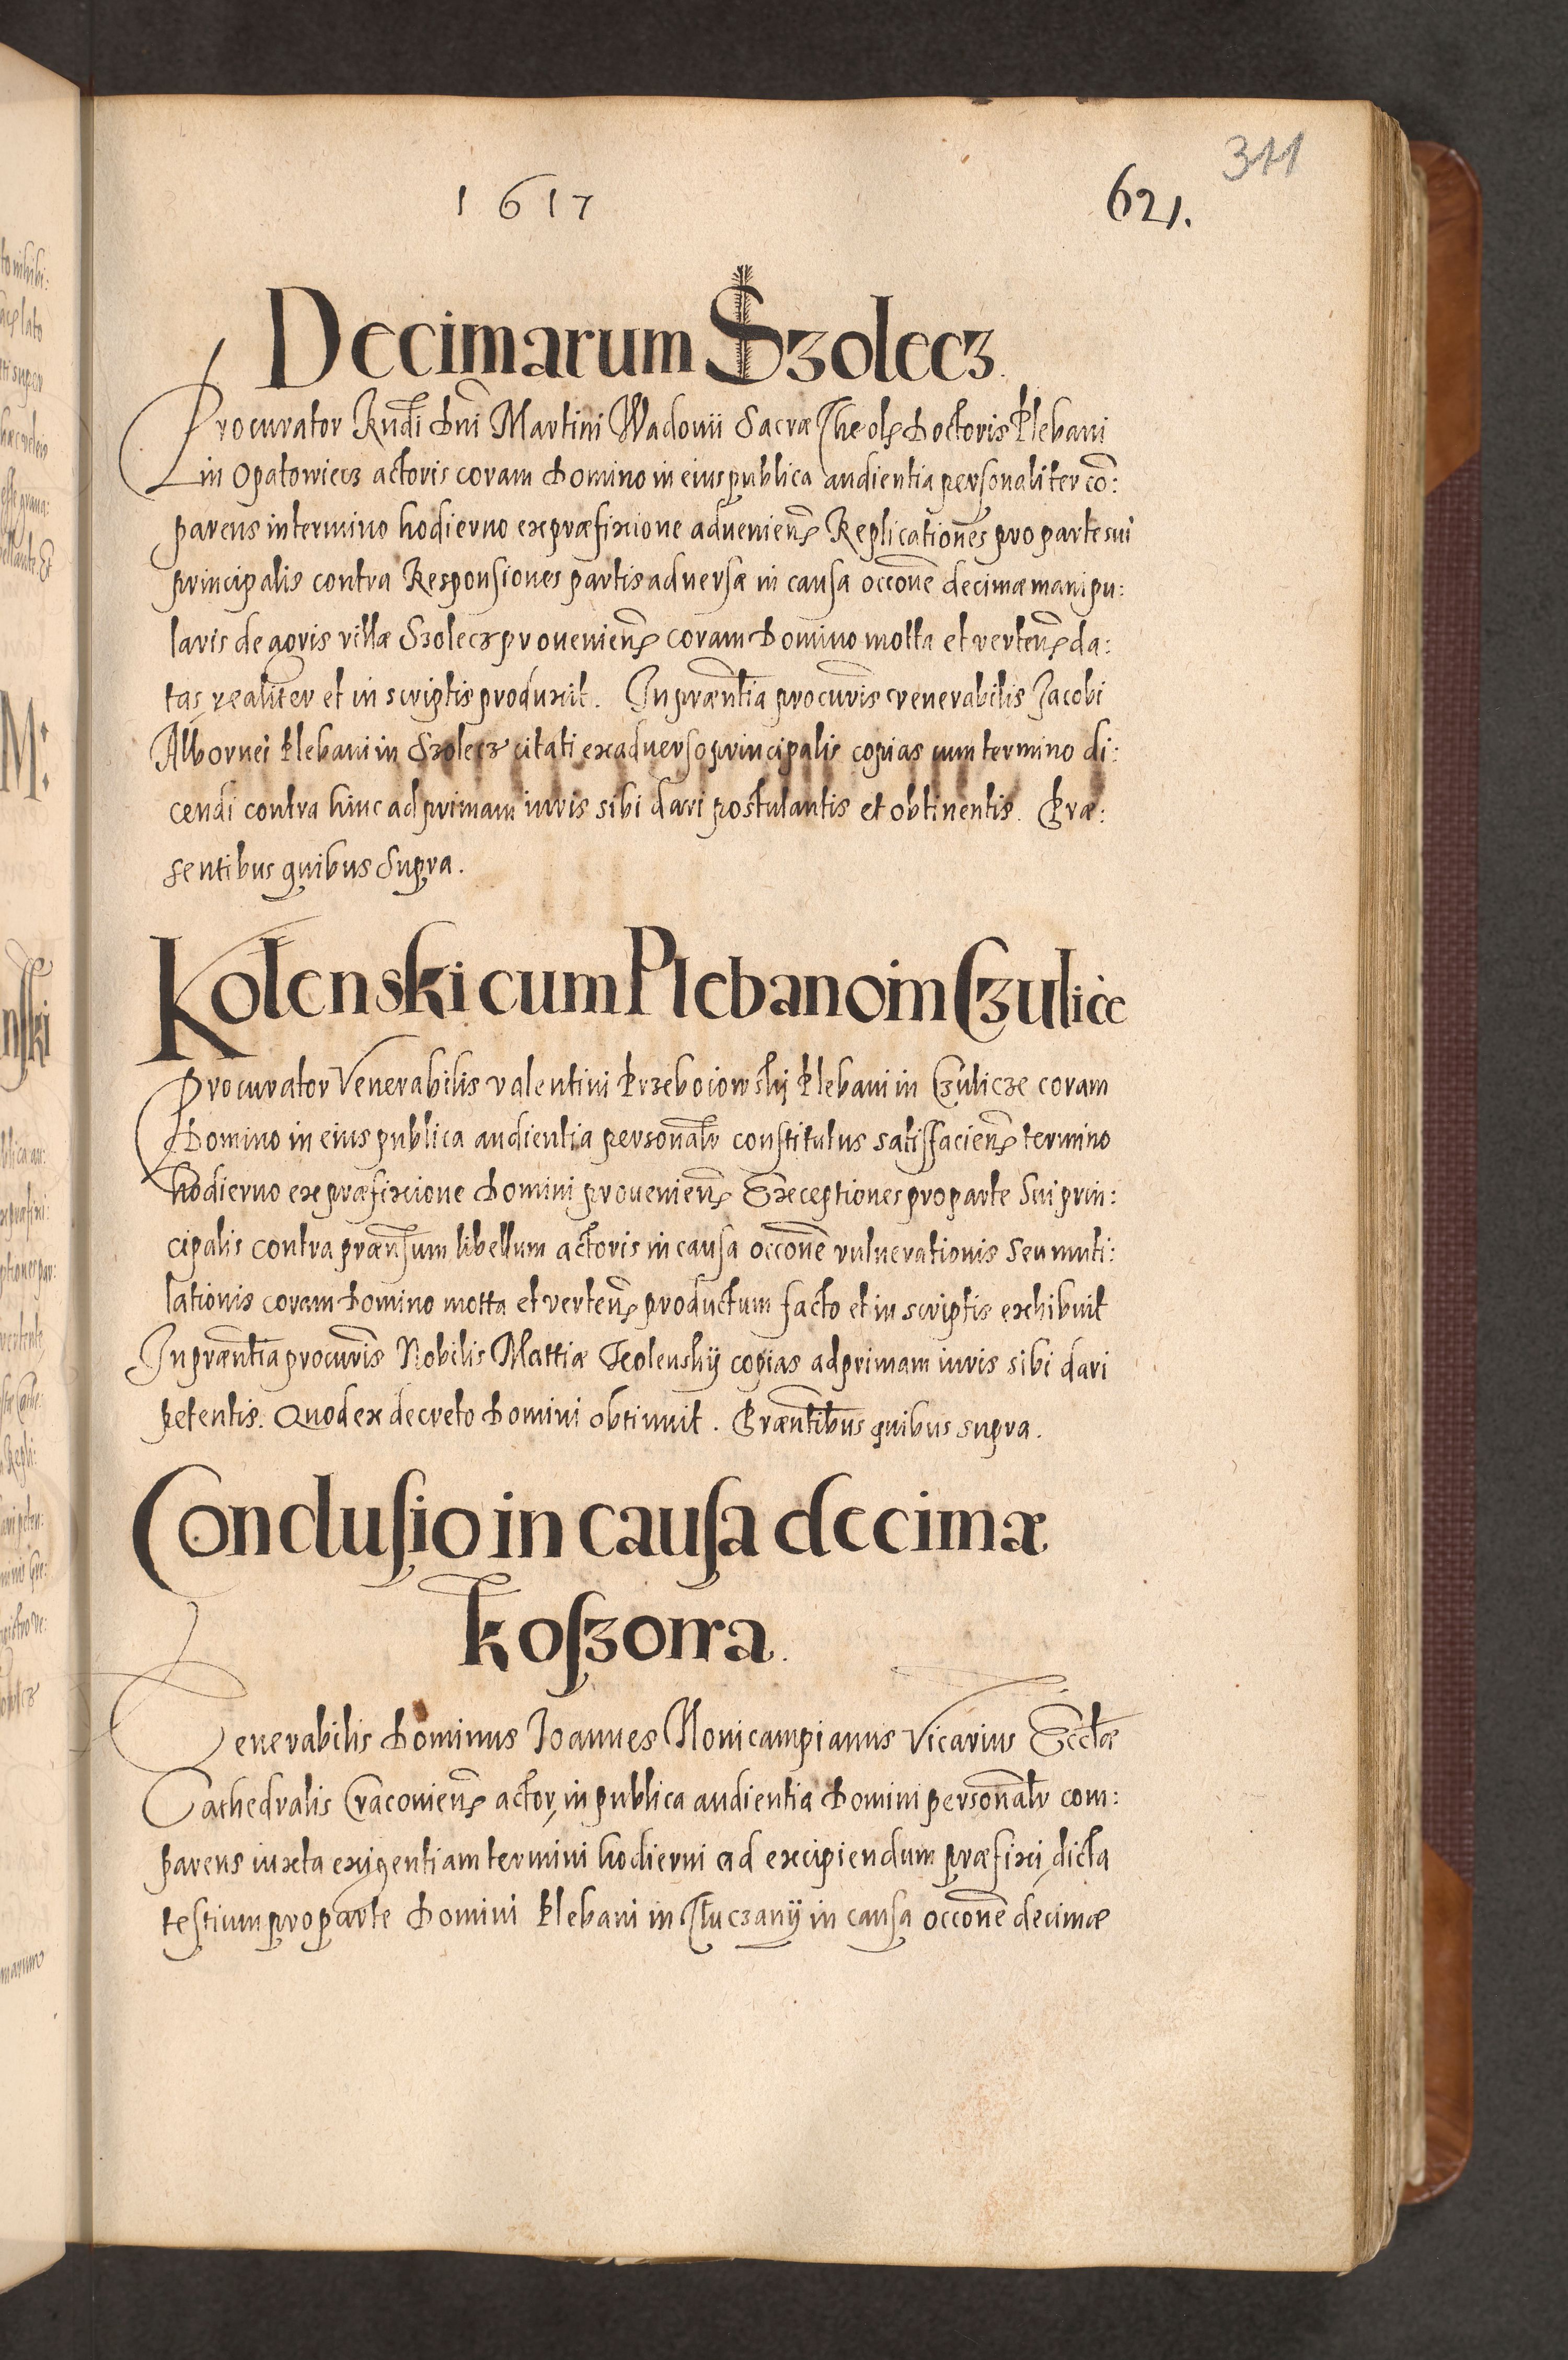 311
1617
621.
Decimarum Szolecz.
Procurator Rndi Dni Martini Wadovii Sacræ Theolę Doctoris Plebani
in Opatowiecz actoris coram Domino in eius publica audientia personaliter cō:
parens in termino hodierno ex præfixione advenienę Replicationes pro parte sui
principalis contra Responsiones partis adversæ in causa occone decimæ manipu:
laris de agris villæ Szolecz provenienę coram Domino motta et vertenę da:
tas, realiter et in scriptis produxit. In præntia procuris venerabilis Jacobi
Albornei Plebani in Szolecz citati ex adverso principalis copias cum termino di:
cendi contra hinc ad primam iuris sibi dari postulantis et obtinentis. Præ:
sentibus quibus Supra.
Kolenski cum Plebano in Czulice
Procurator Venerabilis Valentini Przeboiowskij Plebani in Czulicze coram
Domino in eius publica audientia personalr constitutus satisfacienę termino
hodierno ex præfixione Domini provenienę Exceptiones pro parte Sui prin:
cipalis contra prænsum libellum actoris in causa occone vulnerationis seu muti:
lationis coram Domino motta et vertenę productum facto et in scriptis exhibuit
In præntia procuris Nobilis Mattiæ Kolenskij copias ad primam iuris sibi dari
petentis. Quod ex decreto Domini obtinuit. Præntibus quibus supra.
Conclusio in causa decimæ
Koszowa.
Venerabilis Dominus Joannes Novicampianus Vicarius Ecclæ
Cathedralis Cracovienę actor, in publica audientia Domini personalr com:
parens iuxta exigentiam termini hodierni ad excipiendum præfixi, dicta
testium pro parte Domini Plebani in Tluczanij in causa occone decimæ